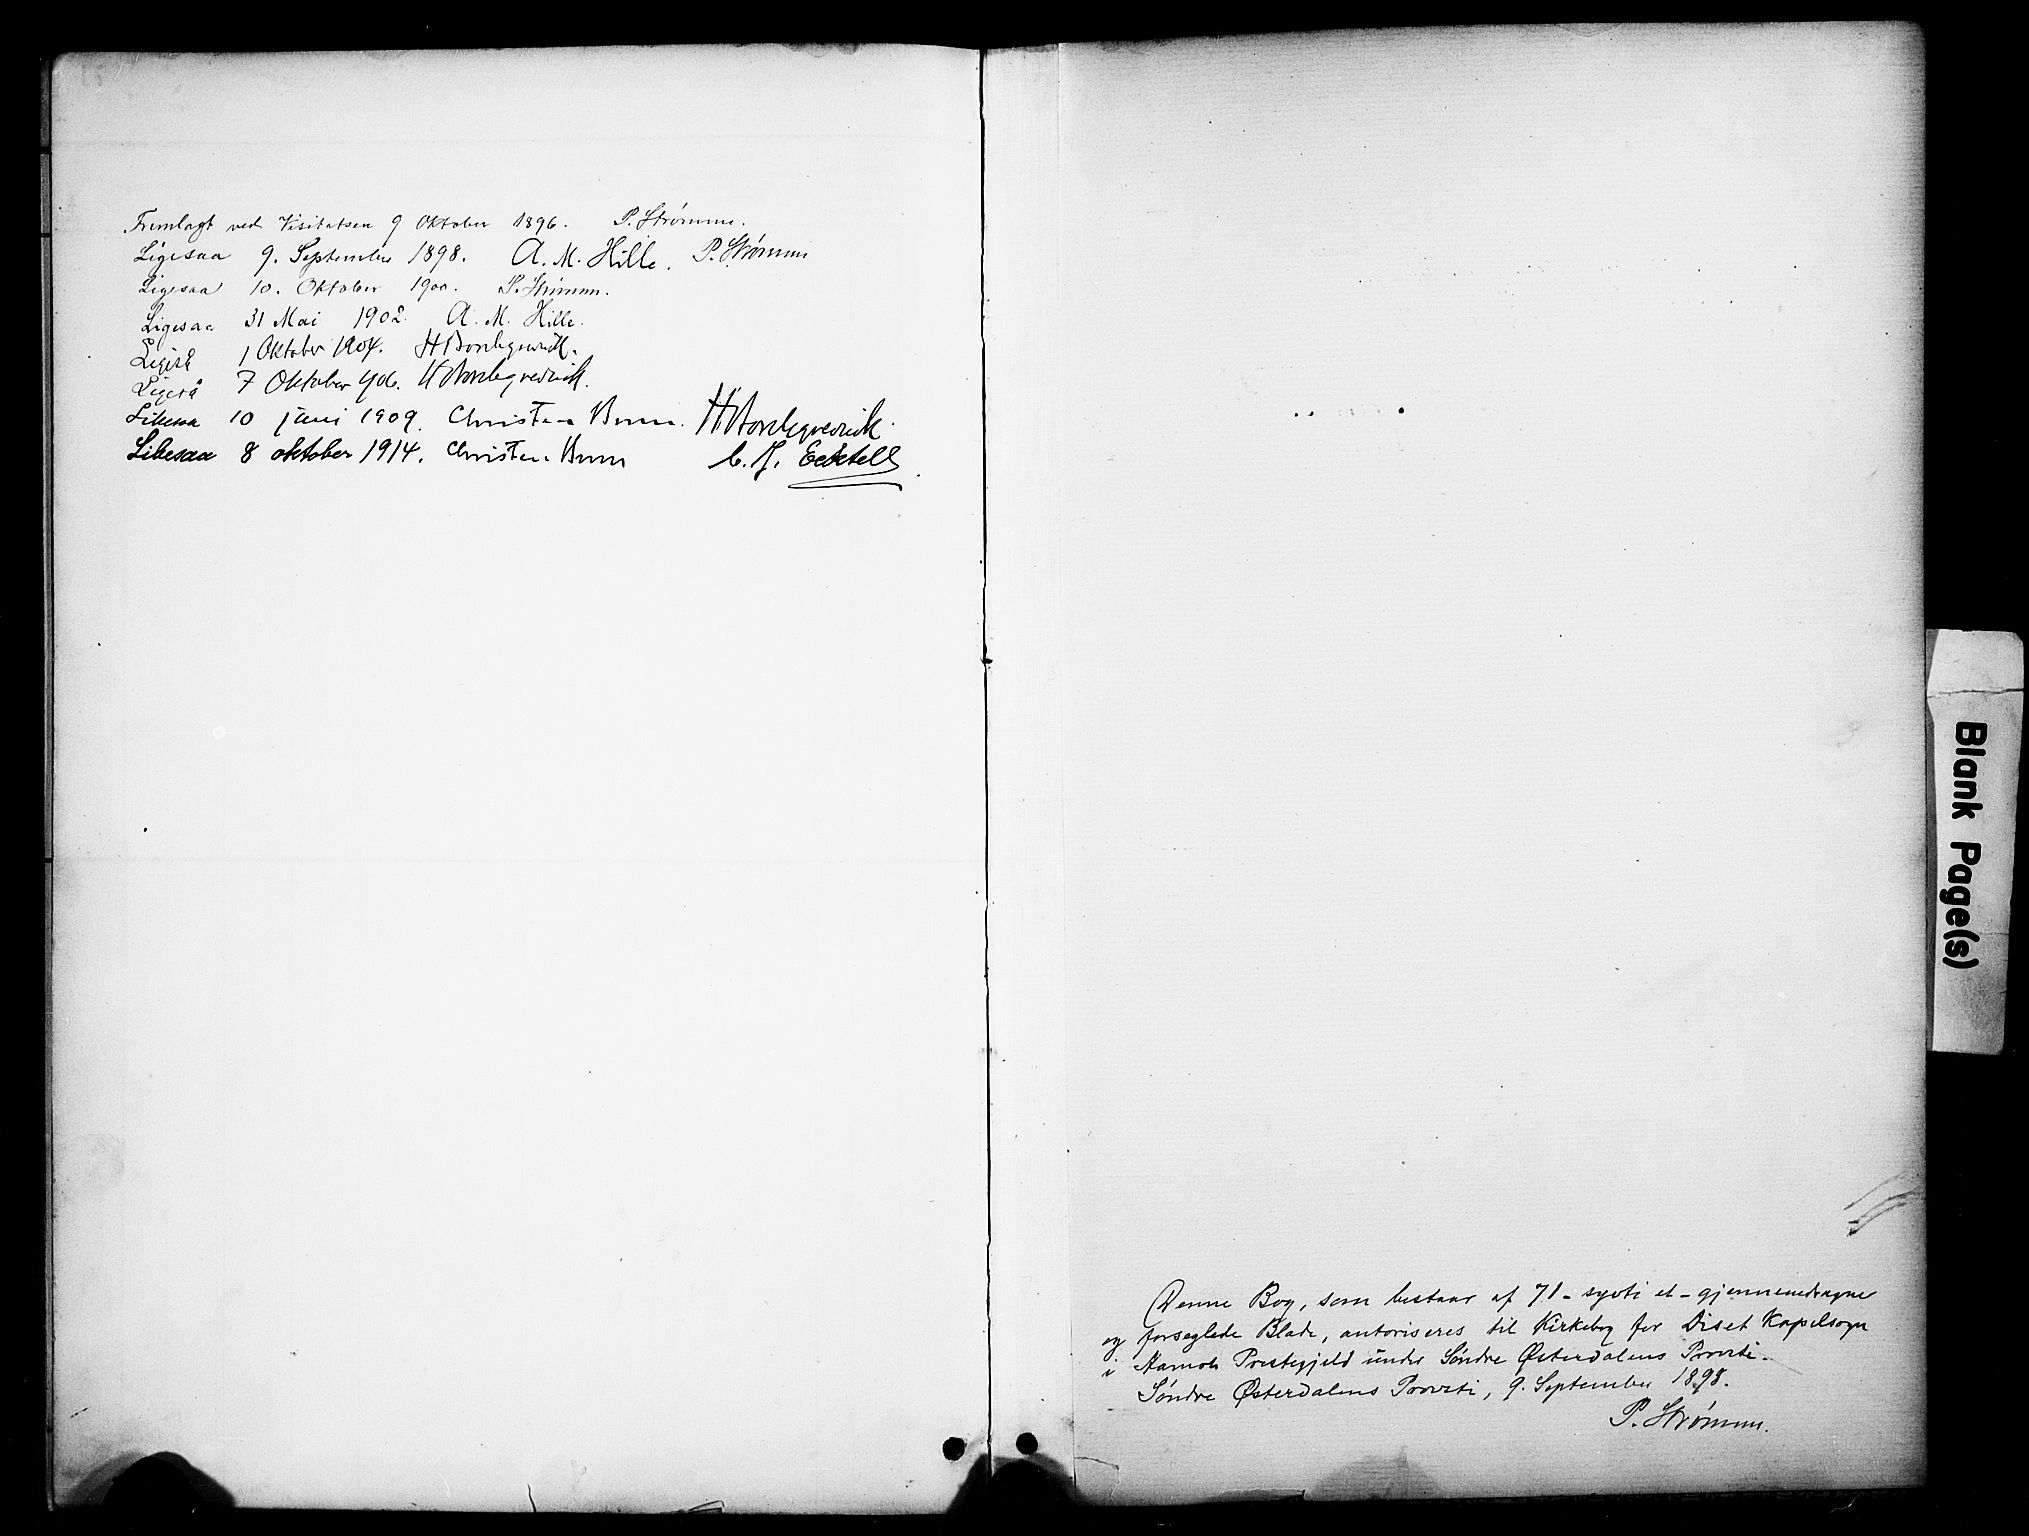 Fremlagt ved Visitatsen 9 Oktober 1896. P. Strømme.
Ligesaa 9. September 1898. A. M. Hille. P. Strømme
Ligesaa 10. Oktober 1900. P. Strømme.
Ligesaa 31 Mai 1902. A. M. Hille.
Ligeså 1 Oktober 1904.
Ligeså 7 Oktober 906.
Likesaa 10 juni 1909. Christen Brun.
Likesaa 8 oktober 1914. Christen Brun
Denne Bog, som bestaar af 71 - sytti et - gjennemdragne
og forseglede Blade, autoriseres til Kirkebog for Diset Kapelsogn
i Aamots Prestegjeld under Søndre Østerdalens Provsti.
Søndre Østerdalens Provsti, 9. September 1898.
P. Strømme.
Blank Page(s)